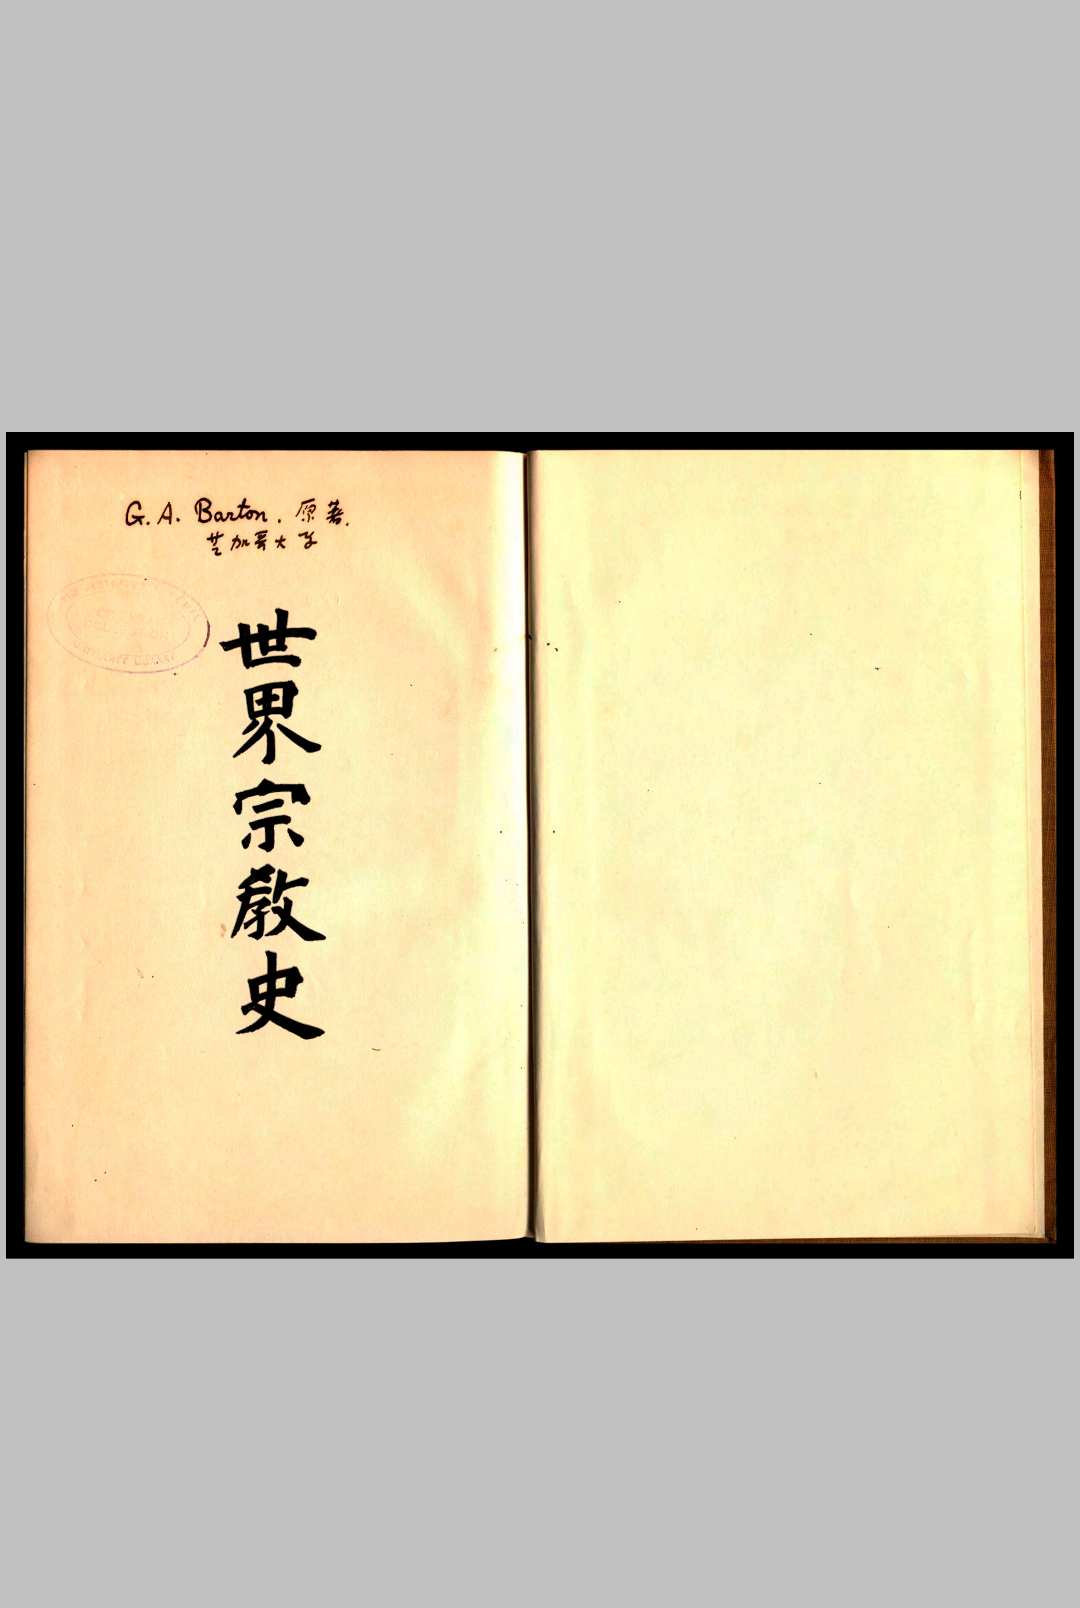 G. A. Barton. 原著.
芝加哥大学
世界宗教史